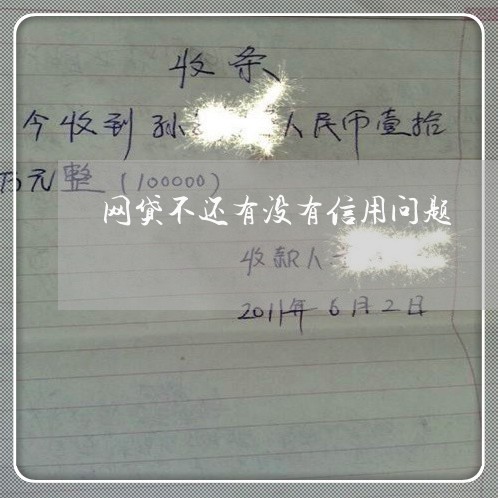 收条
今收到孙 人民币壹拾
万元整(100000)
网贷不还有没有信用问题
收款人
2011年6月2日